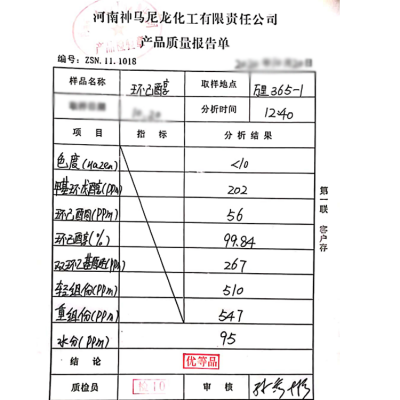 河南神马尼龙化工有限责任公司
产品质量报告单
编号: ZSN.11.1018
样品名称 环己醇 取样地点 万里365-1
分析时间 12:40
项目 指标 分析结果
色度(Hazen) <10
甲基环戊醇(PPm) 202
环己酮(PPm) 56
环己醇(%) 99.84
双环己基醚(PPm) 267
轻组份(PPm) 510
重组份(PPm) 547
水分(PPm) 95
结论 优等品
质检员 审核
第一联 客户存